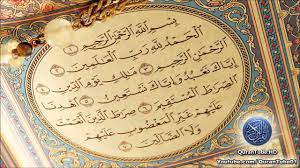 بِسْمِ اللَّهِ الرَّحْمَٰنِ الرَّحِيمِ
الْحَمْدُ لِلَّهِ رَبِّ الْعَٰلَمِينَ
الرَّحْمَٰنِ الرَّحِيمِ مَٰلِكِ يَوْمِ الدِّينِ
إِيَّاكَ نَعْبُدُ وَإِيَّاكَ نَسْتَعِينُ اهْدِنَا
الصِّرَٰطَ الْمُسْتَقِيمَ صِرَٰطَ الَّذِينَ أَنْعَمْتَ
عَلَيْهِمْ غَيْرِ الْمَغْضُوبِ عَلَيْهِمْ
وَلَا الضَّالِّينَ
QuranTube.HD
Youtube.com/QuranTube01